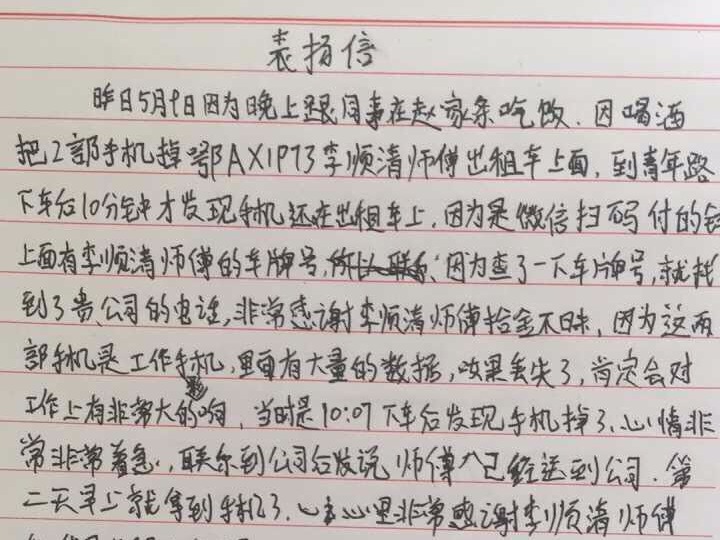 表扬信
昨日5月9日因为晚上跟同事在赵家条吃饭.因喝酒
把2部手机掉鄂AX1P73李顺清师傅出租车上面,到青年路
下车后10分钟才发现手机还在出租车上,因为是微信扫码付的钱
上面有李顺清师傅的车牌号,所以联系,因为查了一下车牌号,就找
到了贵公司的电话,非常感谢李顺清师傅拾金不昧,因为这两
部手机是工作手机,里面有大量的数据,如果丢失了,肯定会对
工作上有非常大的影响,当时是10:07下车后发现手机掉了,心情非
常非常着急,联系到公司后发说师傅已经送到公司.第
二天早上就拿到手机了,心里非常感谢李顺清师傅